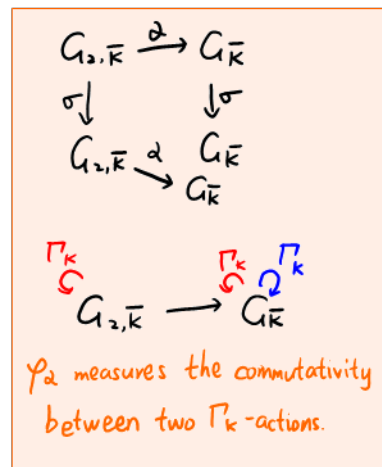 G₂,K̄ →α G_K̄
σ↓ ↓σ
G₂,K̄ →α G_K̄
G_K̄
Γ_K Γ_K Γ_K
G₂,K̄ → G_K̄
φ₂ measures the commutativity
between two Γ_K-actions.